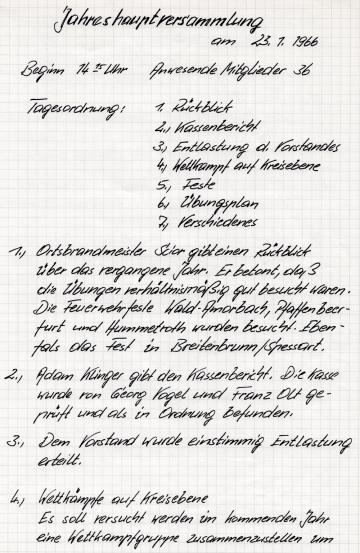 Jahreshauptversammlung
am 23.1.1966
Beginn 14 15 Uhr Anwesende Mitglieder 36
Tagesordnung: 1. Rückblick
2., Kassenbericht
3., Entlastung d. Vorstandes
4., Wettkampf auf Kreisebene
5., Feste
6., Übungsplan
7., Verschiedenes
1., Ortsbrandmeister Scior gibt einen Rückblick
über das vergangene Jahr. Er betont, daß
die Übungen verhältnismäßig gut besucht waren.
Die Feuerwehrfeste Wald-Amorbach, Pfaffenbeer-
furt und Hummetroth wurden besucht. Eben-
falls das Fest in Breitenbrunn/Spessart.
2., Adam Klinger gibt den Kassenbericht. Die Kasse
wurde von Georg Vogel und Franz Olt ge-
prüft und als in Ordnung befunden.
3., Dem Vorstand wurde einstimmig Entlastung
erteilt.
4., Wettkämpfe auf Kreisebene
Es soll versucht werden im kommenden Jahr
eine Wettkampfgruppe zusammenzustellen um